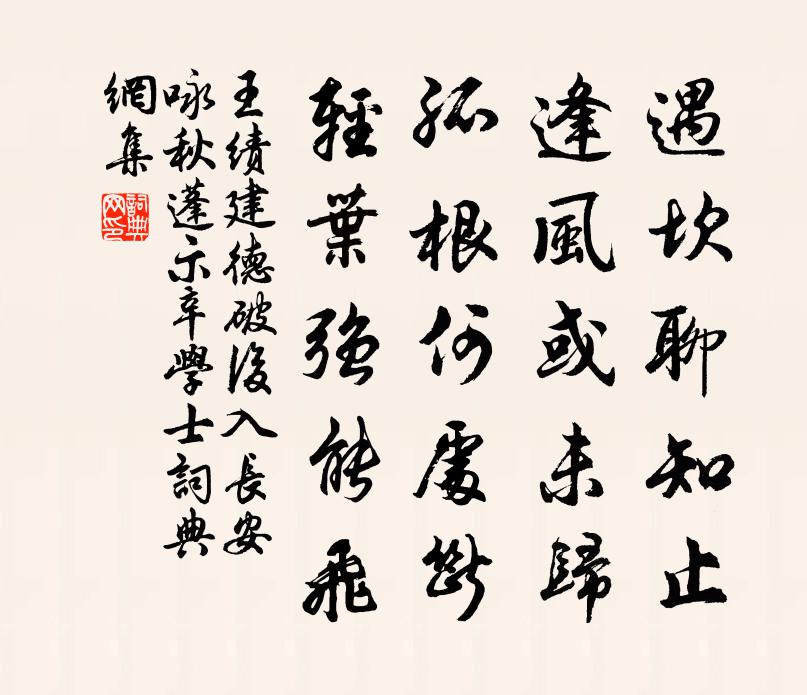 遇坎聊知止
逢風或未歸
孤根何處斷
輕葉強能飛
王績建德破後入長安
咏秋蓬示辛學士詞典
網集
詞典
网印